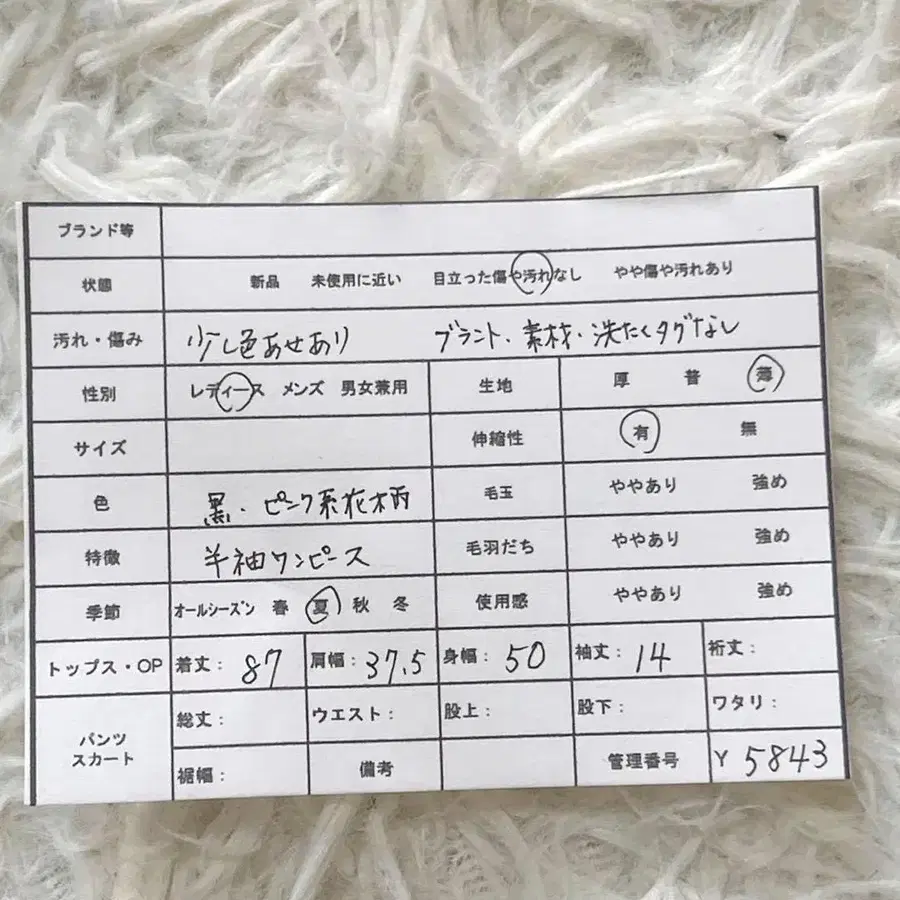 ブランド等
状態 新品 未使用に近い 目立った傷や汚れなし やや傷や汚れあり
汚れ・傷み 少し色あせあり ブランド、素材・洗たくタグなし
性別 レディース メンズ 男女兼用 生地 厚 普 薄
サイズ 伸縮性 有 無
色 黒・ピンク系花柄 毛玉 ややあり 強め
特徴 半袖ワンピース 毛羽だち ややあり 強め
季節 オールシーズン 春 夏 秋 冬 使用感 ややあり 強め
トップス・OP 着丈：87 肩幅：37.5 身幅：50 袖丈：14 裄丈：
パンツ スカート 総丈： ウエスト： 股上： 股下： ワタリ：
裾幅： 備考 管理番号 Y 5843